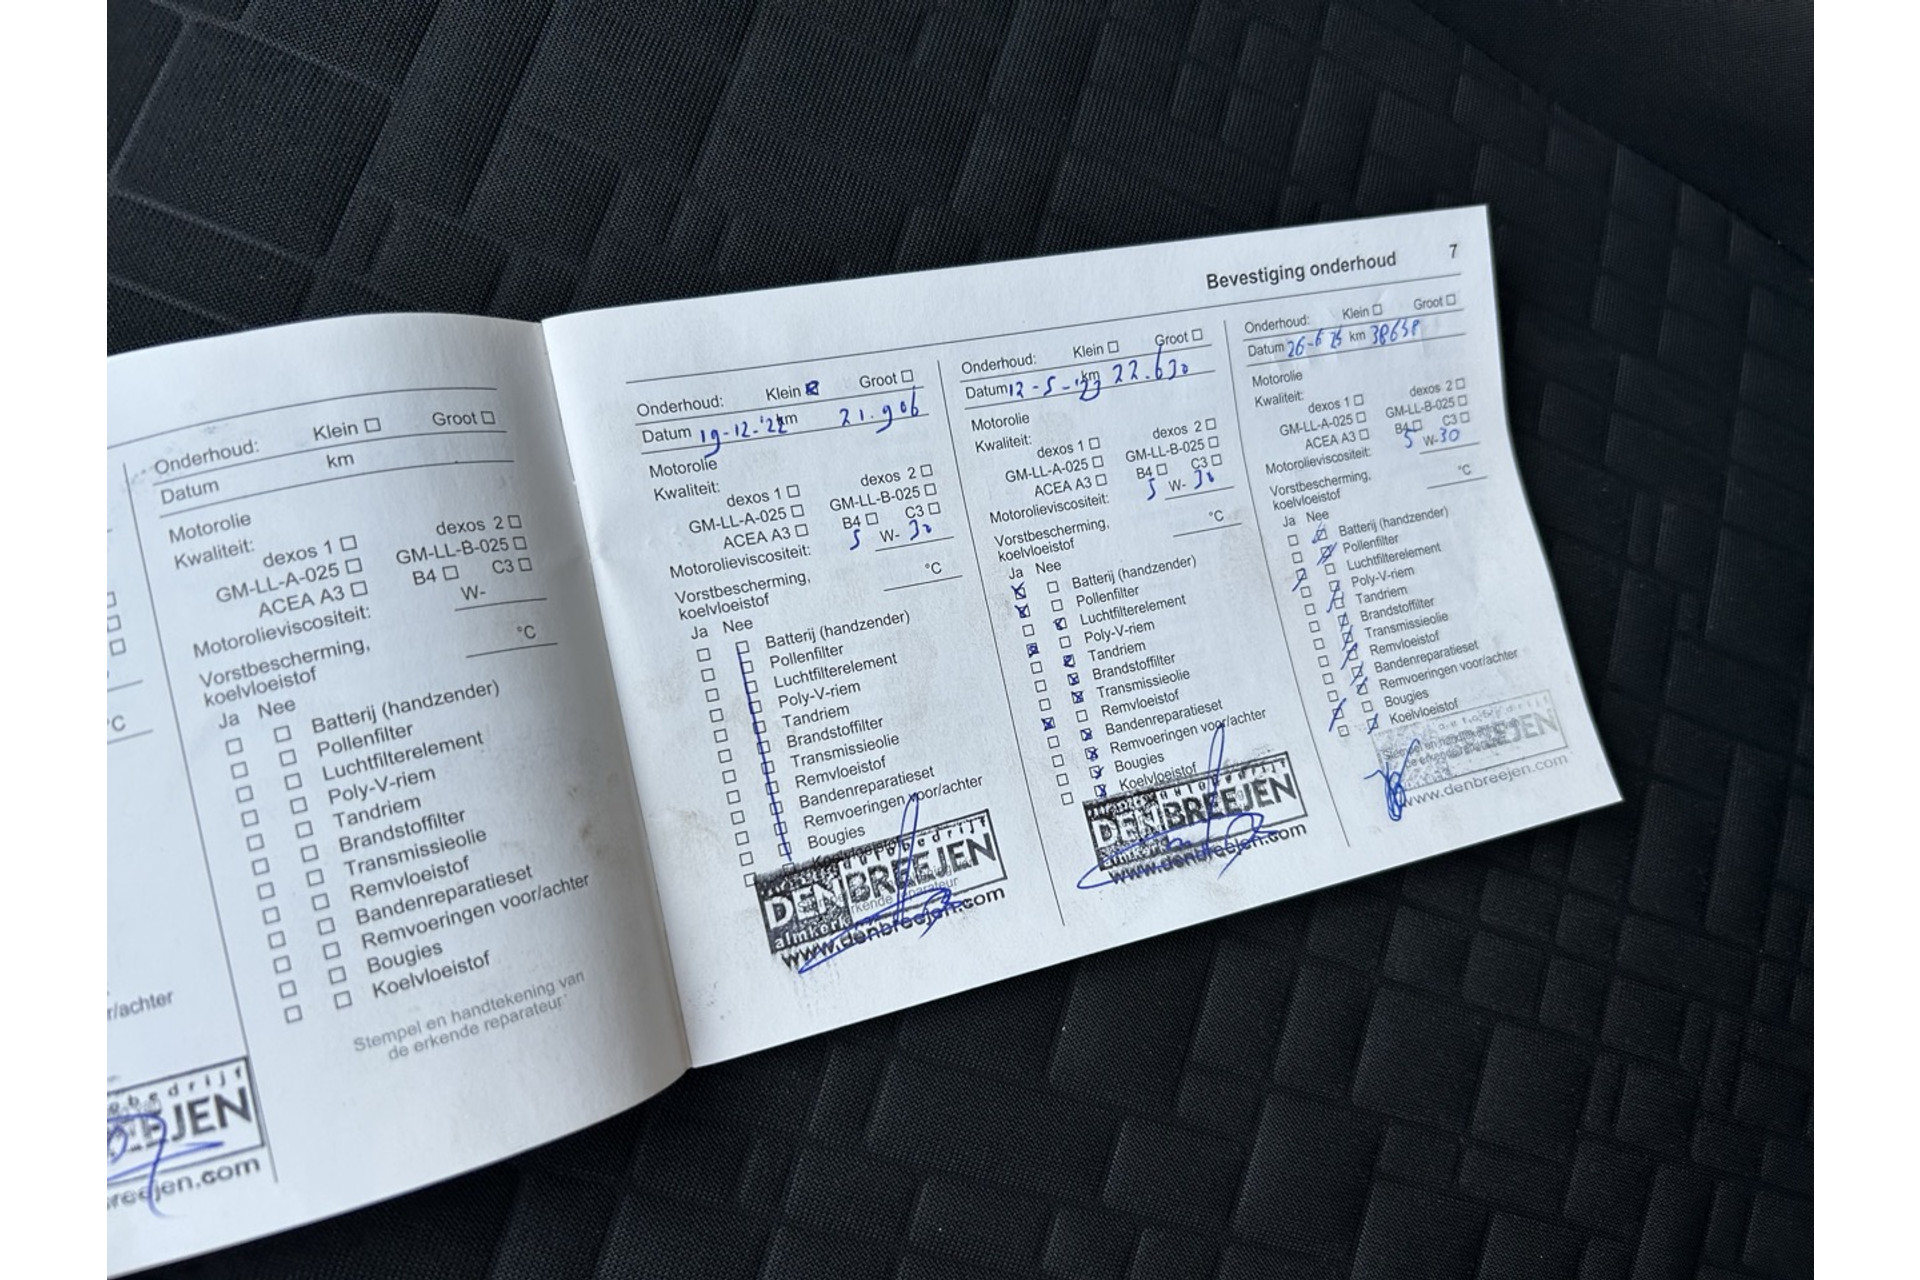 /achter
obedrijf
EJEN
reejen.com
°C
Onderhoud: Klein Groot
Datum km
Motorolie
Kwaliteit: dexos 1 dexos 2
GM-LL-A-025 GM-LL-B-025
ACEA A3 B4 C3
Motorolieviscositeit: W-
Vorstbescherming,
koelvloeistof °C
Ja Nee
Batterij (handzender)
Pollenfilter
Luchtfilterelement
Poly-V-riem
Tandriem
Brandstoffilter
Transmissieolie
Remvloeistof
Bandenreparatieset
Remvoeringen voor/achter
Bougies
Koelvloeistof
Stempel en handtekening van
de erkende reparateur
Bevestiging onderhoud 7
Onderhoud: Klein Groot
Datum 19-12-'22 km 21.906
Motorolie
Kwaliteit: dexos 1 dexos 2
GM-LL-A-025 GM-LL-B-025
ACEA A3 B4 C3
Motorolieviscositeit: 5 W- 30
Vorstbescherming,
koelvloeistof °C
Ja Nee
Batterij (handzender)
Pollenfilter
Luchtfilterelement
Poly-V-riem
Tandriem
Brandstoffilter
Transmissieolie
Remvloeistof
Bandenreparatieset
Remvoeringen voor/achter
Bougies
Koelvloeistof
DEN BREEJEN
almkerk
www.denbreejen.com
Onderhoud: Klein Groot
Datum 12-5-'23 km 22.630
Motorolie
Kwaliteit: dexos 1 dexos 2
GM-LL-A-025 GM-LL-B-025
ACEA A3 B4 C3
Motorolieviscositeit: 5 W- 30
Vorstbescherming,
koelvloeistof °C
Ja Nee
Batterij (handzender)
Pollenfilter
Luchtfilterelement
Poly-V-riem
Tandriem
Brandstoffilter
Transmissieolie
Remvloeistof
Bandenreparatieset
Remvoeringen voor/achter
Bougies
Koelvloeistof
DEN BREEJEN
www.denbreejen.com
Onderhoud: Klein Groot
Datum 26-6 25 km 38658
Motorolie
Kwaliteit: dexos 1 dexos 2
GM-LL-A-025 GM-LL-B-025
ACEA A3 B4 C3
Motorolieviscositeit: 5 W-30
Vorstbescherming,
koelvloeistof °C
Ja Nee
Batterij (handzender)
Pollenfilter
Luchtfilterelement
Poly-V-riem
Tandriem
Brandstoffilter
Transmissieolie
Remvloeistof
Bandenreparatieset
Remvoeringen voor/achter
Bougies
Koelvloeistof
www.denbreejen.com